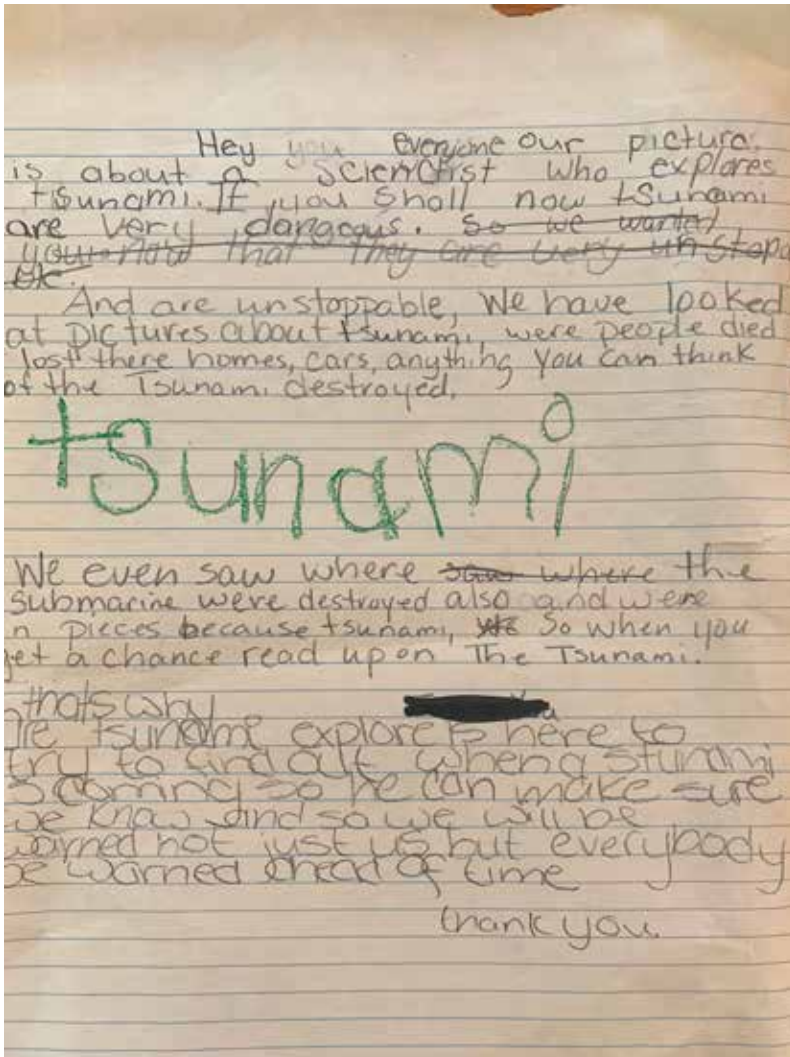 Hey you everyone our picture.
is about a scientist who explores
tsunami. If you shall now tsunami
are very dangous. So we wanted
you now that they are very unstopa
ble.
And are unstoppable, We have looked
at pictures about tsunami, were people died
lost there homes, cars, anything you can think
of the Tsunami destroyed.
tsunami
We even saw where saw where the
submarine were destroyed also and were
n pieces because tsunami, We So when you
get a chance read up on The Tsunami.
thats why
tsuname explore is here to
try to find out when a stunami
s coming so he can make sure
we know and so we will be
warned not just us but everybody
be warned ahead of time
thank you.